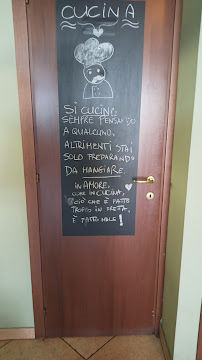 CUCINA
SI CUCINA
SEMPRE PENSANDO
A QUALCUNO,
ALTRIMENTI STAI
SOLO PREPARANDO
DA MANGIARE.
IN AMORE,
COME IN CUCINA,
CIÒ CHE È FATTO
TROPPO IN FRETTA,
È FATTO MALE!